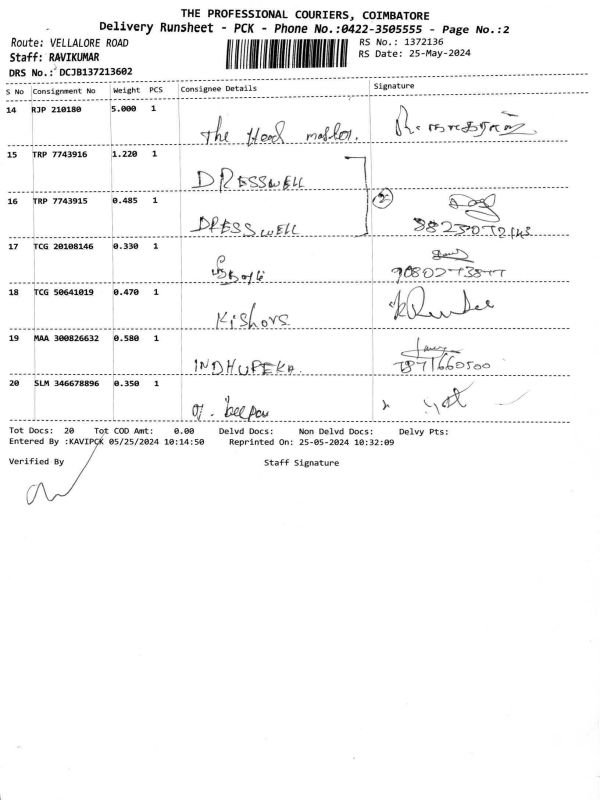 THE PROFESSIONAL COURIERS, COIMBATORE
Delivery Runsheet - PCK - Phone No.:0422-3505555 - Page No.:2
Route: VELLALORE ROAD
RS No.: 1372136
Staff: RAVIKUMAR
RS Date: 25-May-2024
DRS No.: DCJB137213602
S No Consignment No Weight PCS Consignee Details Signature
14 RJP 210180 5.000 1
The Head master.
15 TRP 7743916 1.220 1
DRESSWELL
16 TRP 7743915 0.485 1
DRESSWELL
2
17 TCG 20108146 0.330 1
18 TCG 50641019 0.470 1
Kishors
19 MAA 300826632 0.580 1
INDHUPEKA.
7871660500
20 SLM 346678896 0.350 1
Tot Docs: 20 Tot COD Amt: 0.00 Delvd Docs: Non Delvd Docs: Delvy Pts:
Entered By :KAVIPCK 05/25/2024 10:14:50 Reprinted On: 25-05-2024 10:32:09
Verified By Staff Signature